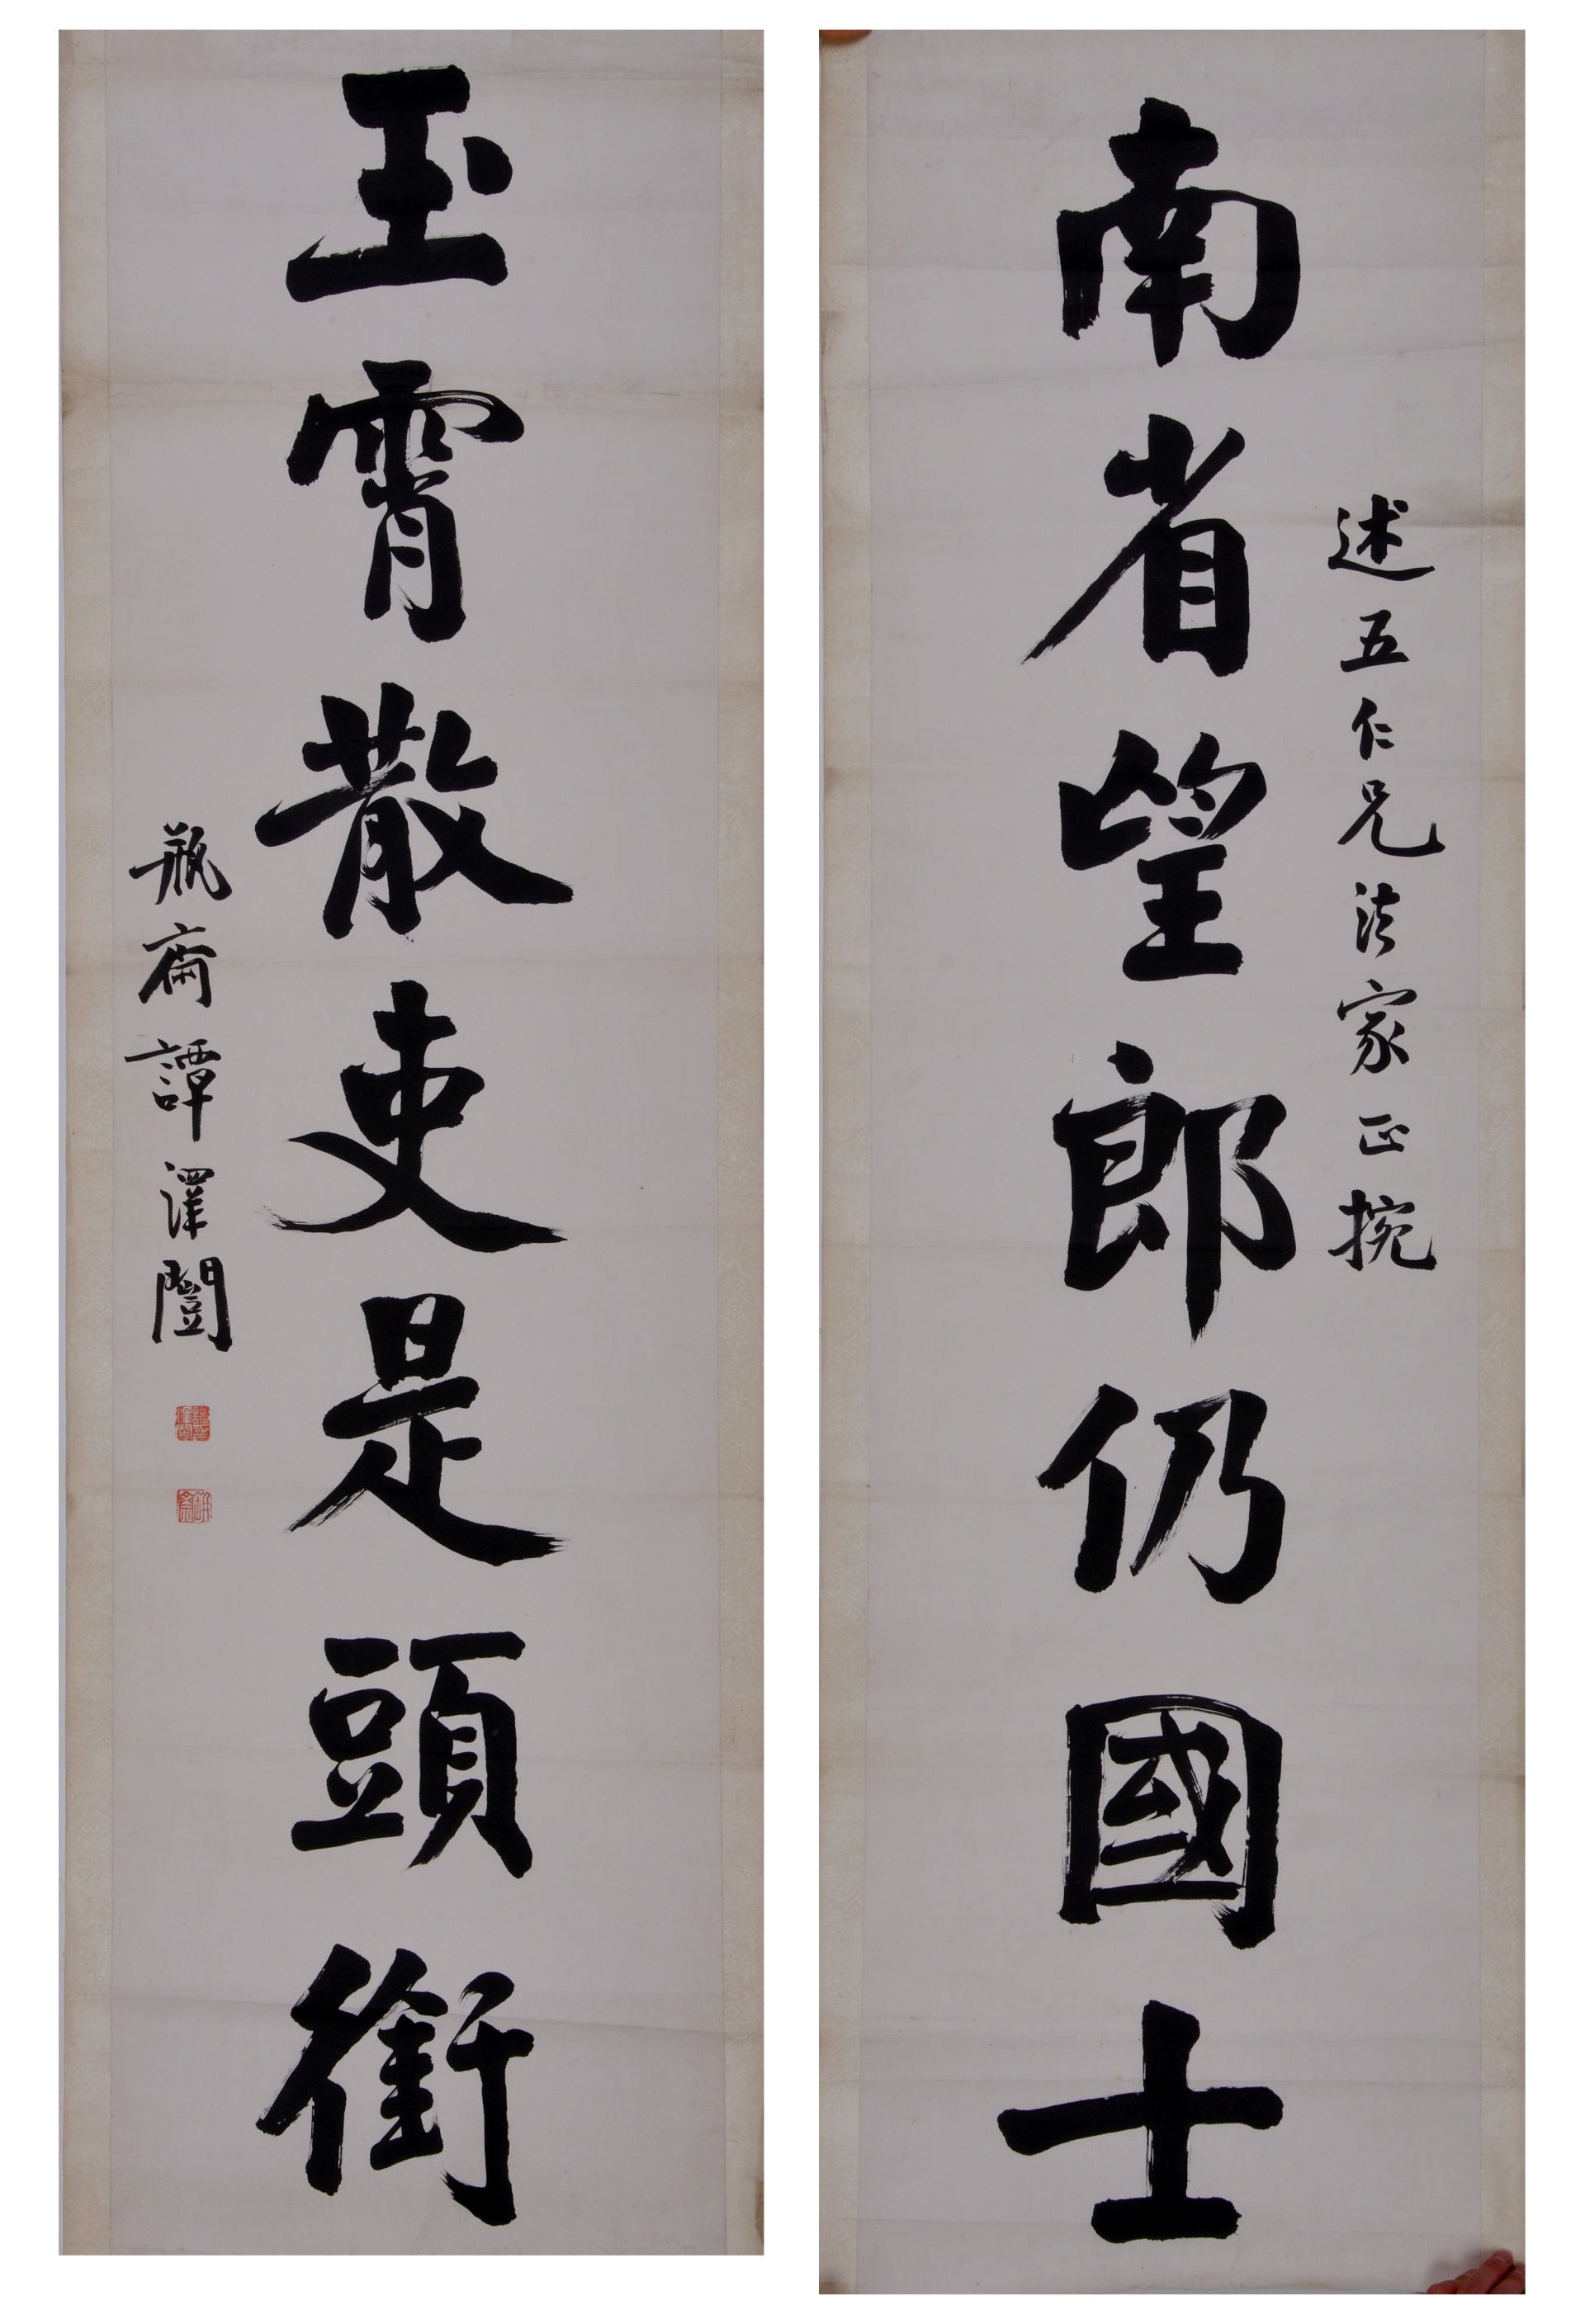 述五仁兄法家正捥
南省望郎仍國士
玉霄散吏是頭銜
瓶齋譚澤闓